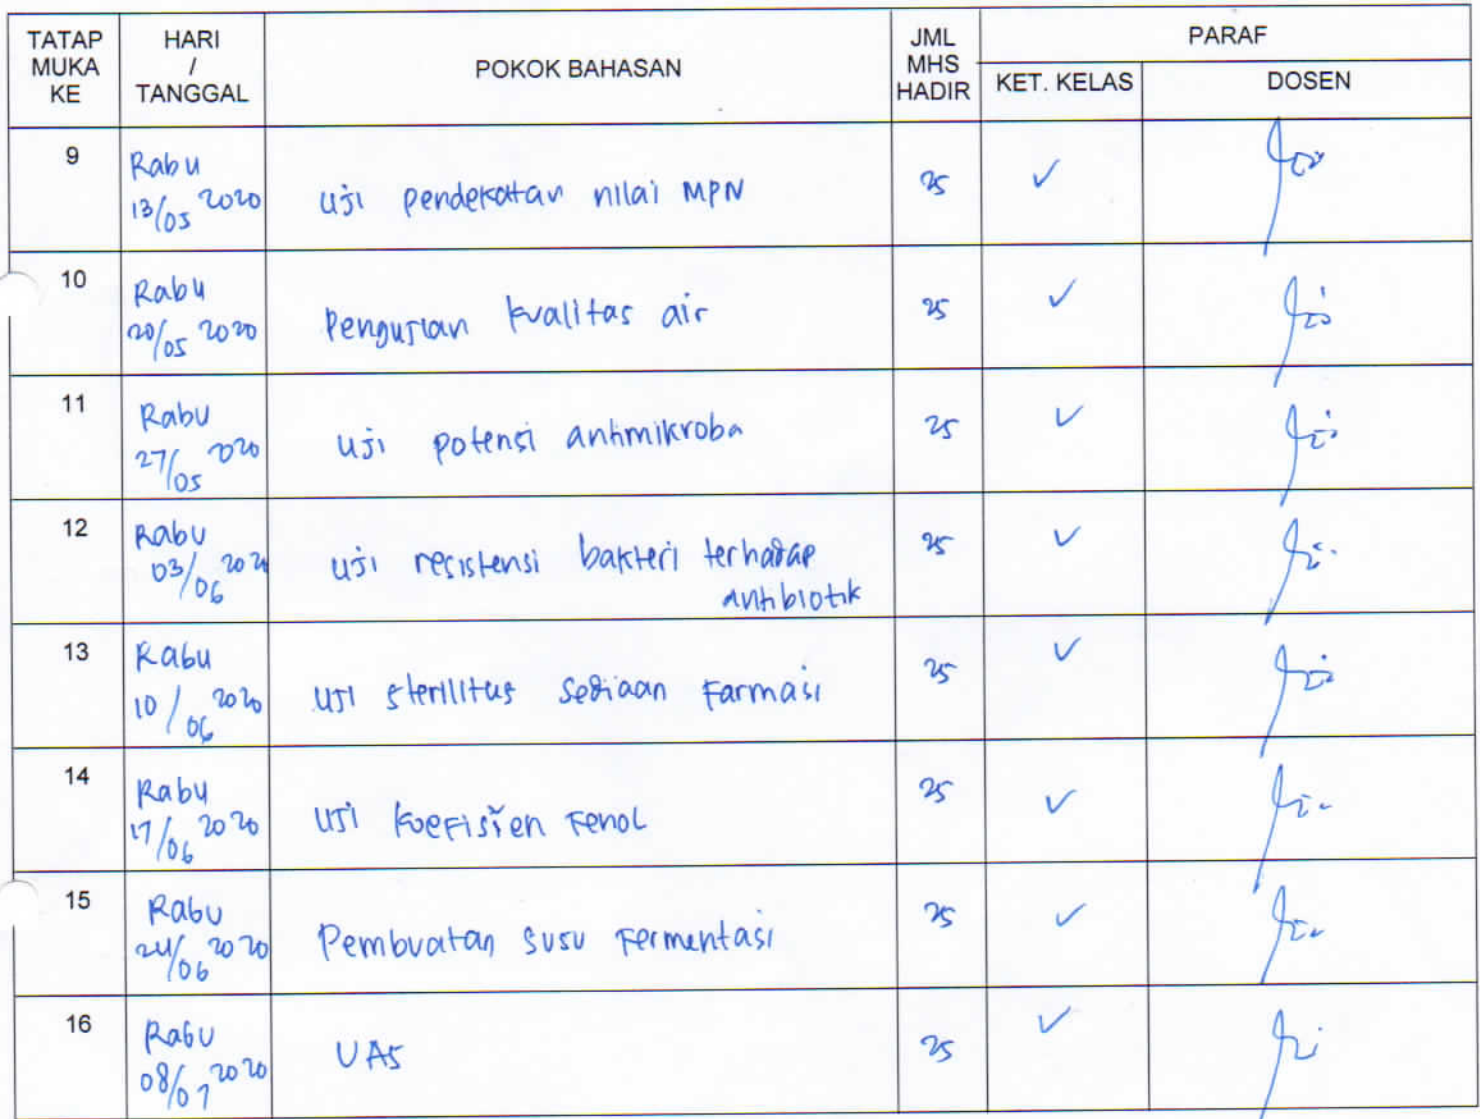 TATAP MUKA KE HARI / TANGGAL POKOK BAHASAN JML MHS HADIR PARAF
KET. KELAS DOSEN
9 Rabu 13/05 2020 Uji pendekatan nilai MPN 25 ✓
10 Rabu 20/05 2020 Pengujian kualitas air 25 ✓
11 Rabu 27/05 2020 Uji potensi antimikroba 25 ✓
12 Rabu 03/06 2020 Uji resistensi bakteri terhadap 25 ✓
antibiotik
13 Rabu 10/06 2020 Uji sterilitas sediaan Farmasi 25 ✓
14 Rabu 17/06 2020 Uji Koefisien Fenol 25 ✓
15 Rabu 24/06 2020 Pembuatan susu Fermentasi 25 ✓
16 Rabu 08/07 2020 UAS 25 ✓